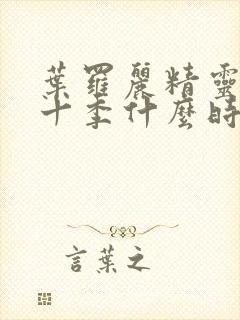 葉羅麗精靈
十季什麼時
言葉之